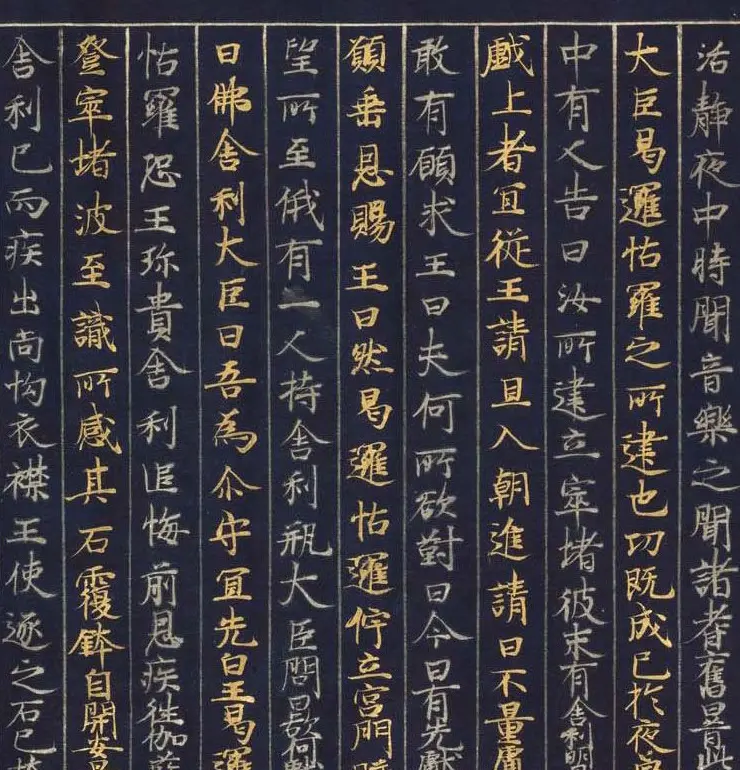 活靜夜中時聞音樂之聞諸耆舊曰此
大臣曷邏怙羅之所建也功既成已於夜
中有人告曰汝所建立窣堵彼未有舍利明
獻上者宜從王請且入朝進請曰不量庸
敢有願求王曰夫何所欲對曰今日有先獻
願垂恩賜王曰然曷邏怙邏佇立宮門
望所至俄有一人持舍利瓶大臣問曰欲何
曰佛舍利大臣曰吾為尒守宜先白王曷邏
怙羅恐王珎貴舍利追悔前恩疾往伽藍
登窣堵波至識所感其石覆鉢自開安
舍利已而疾出尚拘衣襟王使逐之石已